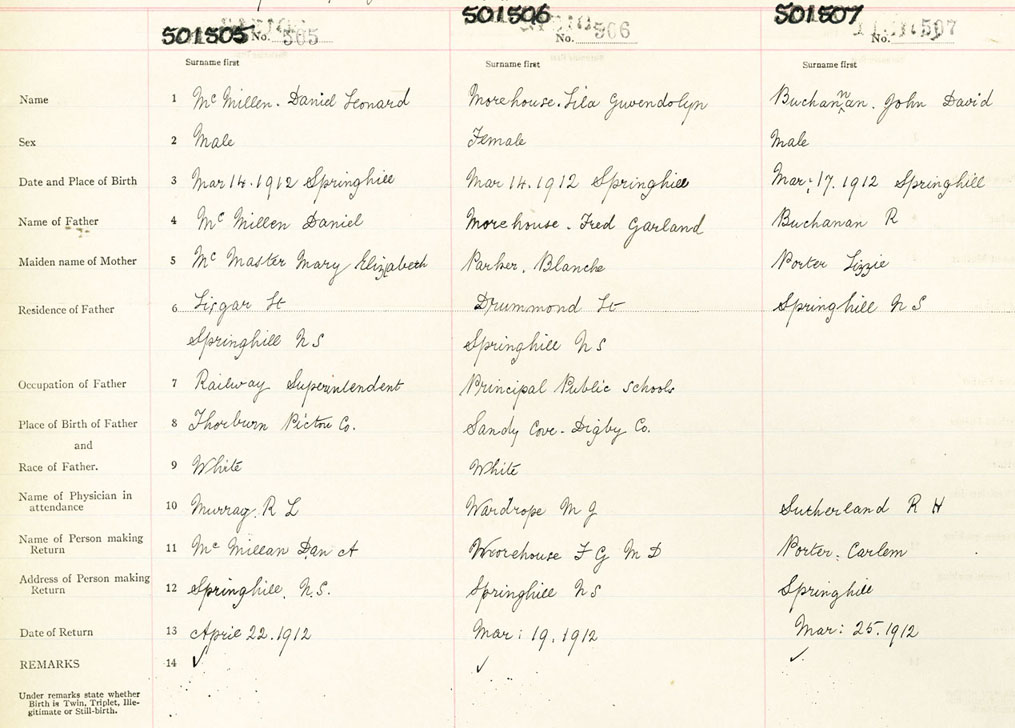 501505 No. 505 501506 No. 506 501507 No. 507
Surname first Surname first Surname first
Name 1 Mc Millen. Daniel Leonard Morehouse. Lila Gwendolyn Buchannan. John David
Sex 2 Male Female Male
Date and Place of Birth 3 Mar 14. 1912 Springhill Mar 14. 1912 Springhill Mar: 17. 1912 Springhill
Name of Father 4 Mc Millen Daniel Morehouse. Fred Garland Buchanan R
Maiden name of Mother 5 Mc Master Mary Elizabeth Parker, Blanche Porter Lizzie
Residence of Father 6 Lisgar St Drummond St Springhill N S
Springhill N S Springhill N S
Occupation of Father 7 Railway Superintendent Principal Public Schools
Place of Birth of Father 8 Thorburn Pictou Co. Sandy Cove - Digby Co.
and
Race of Father. 9 White White
Name of Physician in
attendance 10 Murray. R L Wardrope M J Sutherland R H
Name of Person making
Return 11 Mc Millan Dan A Morehouse F G M D Porter. Carlem
Address of Person making
Return 12 Springhill. N.S. Springhill N S Springhill
Date of Return 13 April 22. 1912 Mar: 19. 1912 Mar: 25. 1912
REMARKS 14 ✓ ✓ ✓
Under remarks state whether
Birth is Twin, Triplet, Ille-
gitimate or Still-birth.